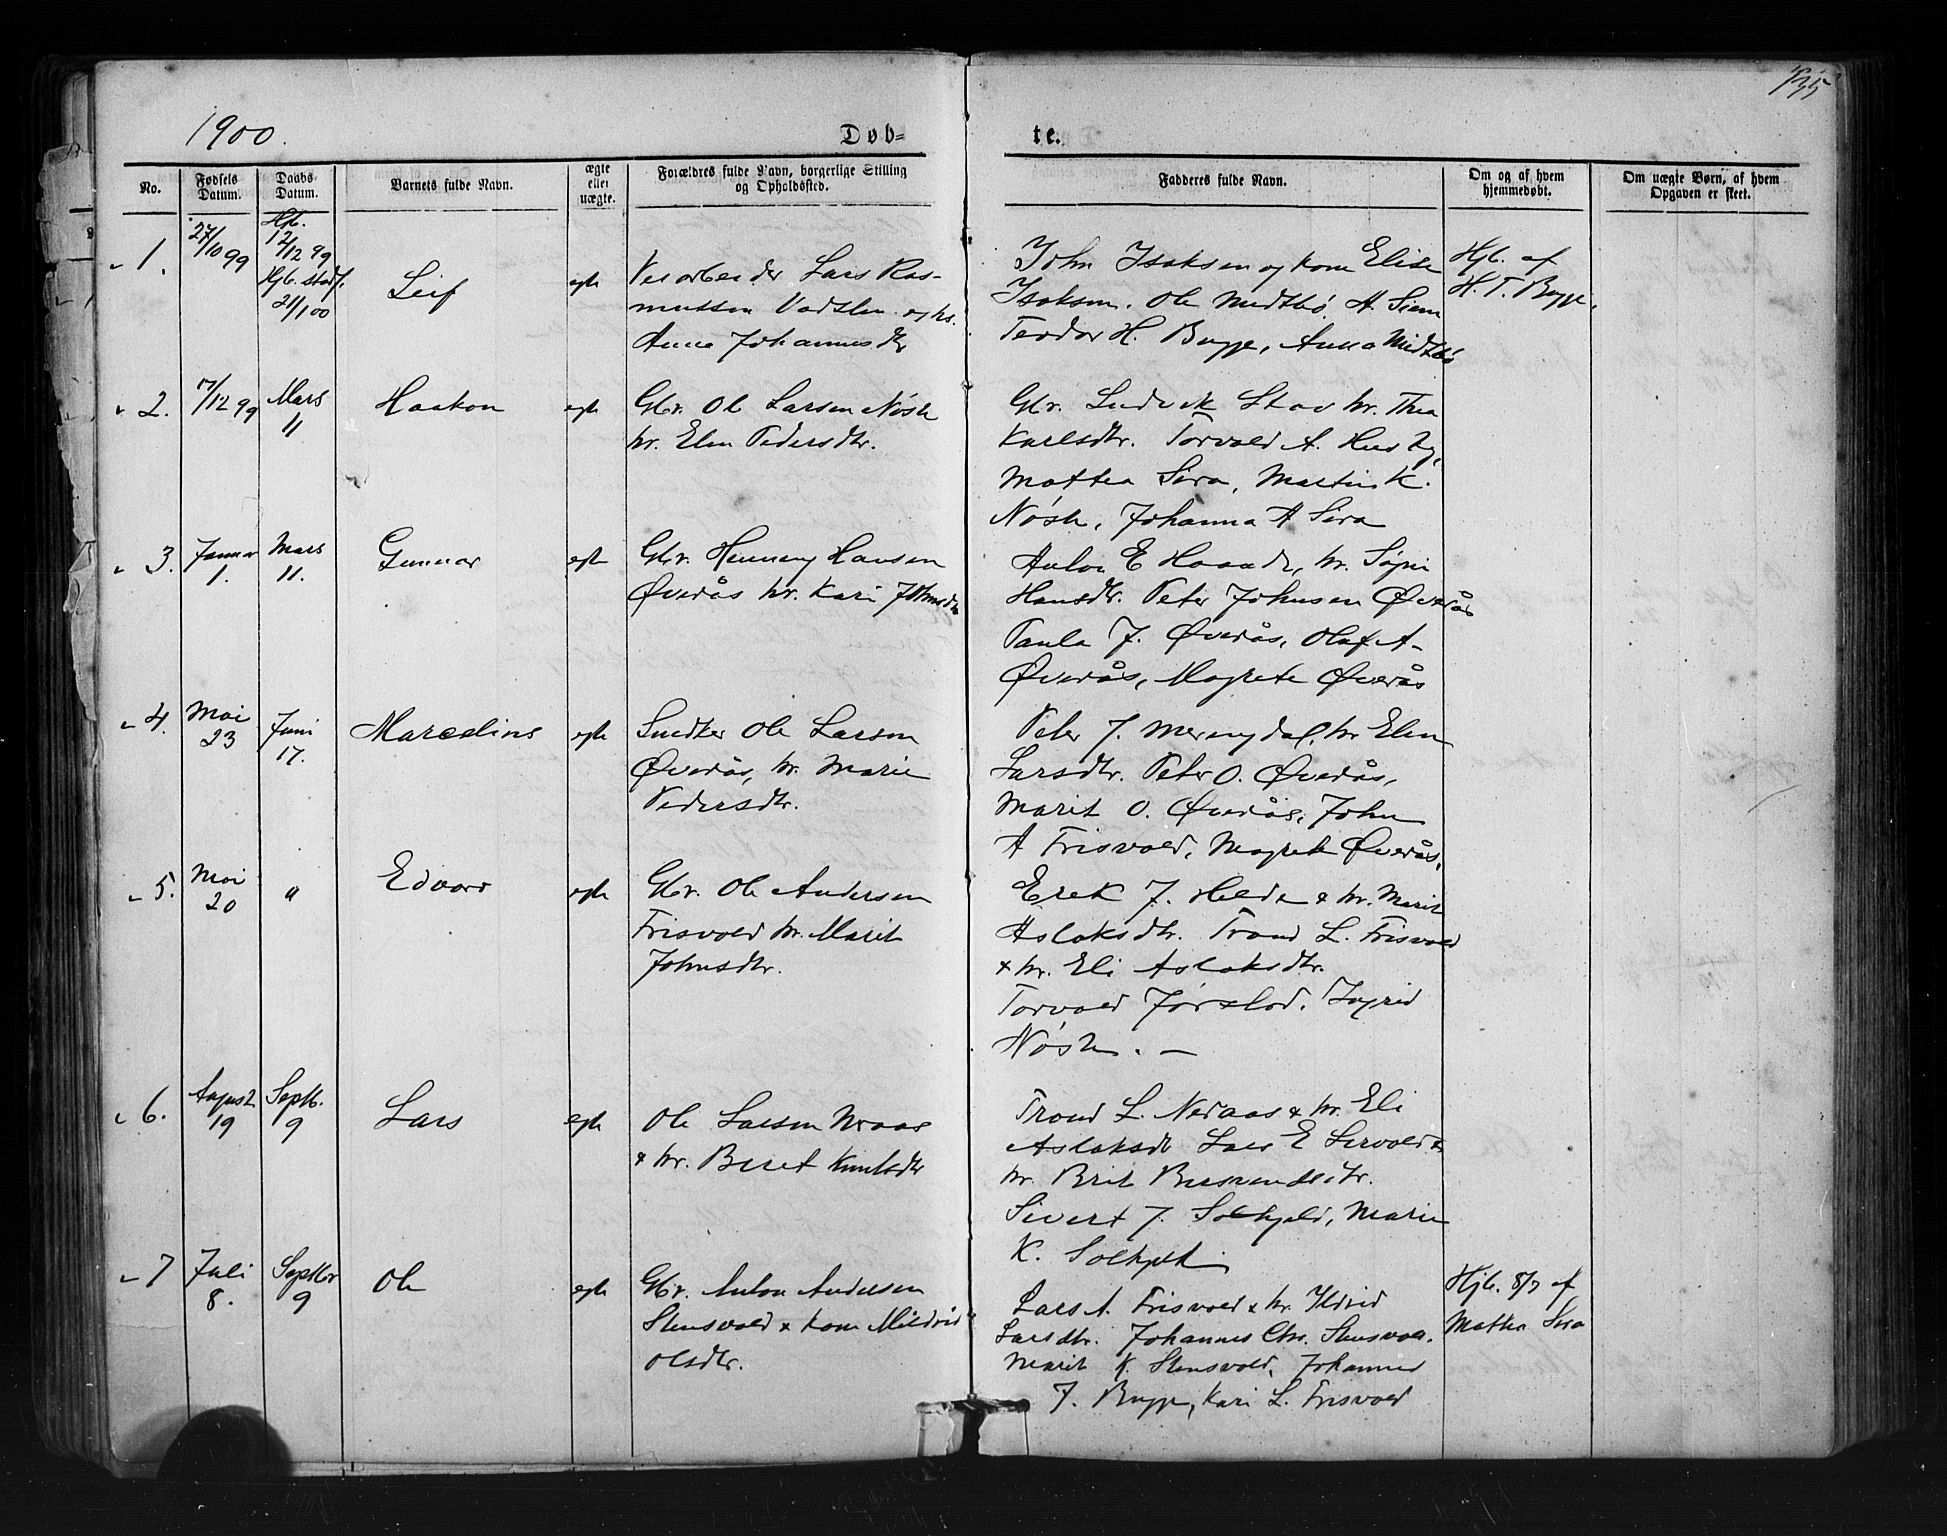 1900.
Døb-
te.
135
No.
Fødsels Datum.
Daabs Datum.
Barnets fulde Navn.
ægte eller uægte.
Forældres fulde Navn, borgerlige Stilling og Opholdssted.
Fadderes fulde Navn.
Om og af hvem hjemmedøbt.
Om uægte Børn, af hvem Opgaven er skeet.
1.
27/10 99
Hjb.
12/12 99
Hjb. stadf.
21/1 00
Leif
egte
Veiarbeider Lars Ras-
mussen Vadsten og hs.
Anna Johannesdtr
John Isaksen og kone Elise
Isaksen. Ole Midtbø. A. Siem
Teodor H. Bugge, Anna Midtbø
Hjb. af
H. T. Bugge.
2.
17/12 99
Mars
11
Haakon
egte
Gbr. Ole Larsen Nøste
hr. Elen Pedersdtr.
Gbr. Ludvik Stav hr. Thea
Karlsdtr. Torvald A. Husby,
Mattea Sira, Martin K.
Nøste, Johanna A Sira
3.
Januar
1.
Mars
11.
Gunnar
egte
Gbr. Henning Hansen
Øverås hr. Kari Johnsdtr
Anton E Haande, hr. Signi
Hansdtr. Peter Johnsen Øverås
Paula J. Øverås, Olaf A-
Øverås, Magrete Øverås
4.
Mai
23
Juni
17.
Marcelius
egte
Snedker Ole Larsen
Øverås, hr. Marie
Pedersdtr.
Peter J. Meringdal, hr Elen
Larsdtr. Peter O. Øverås,
Marit O. Øverås, John
A Frisvold, Magrete Øverås,
5.
Mai
20
"
Edvard
egte
Gbr. Ole Andersen
Frisvold hr. Marit
Johnsdtr.
Erik J. Helde & hr. Marit
Aslaksdtr. Trond L. Frisvold
& hr. Eli Aslaksdtr.
Torvald Ingrid
Nøste. —
6.
August
19
Septb.
9
Lars
egte
Ole Larsen Neraas
& hr. Beret Knutsdtr
Trond L. Neraas & hr. Eli
Aslaksdtr Lars E &
hr. Brit
Sivert J. Solhjeld, Marie
K. Solhjeld
7
Juli
8.
Septbr
9
Ole
egte
Gbr. Anton Andersen
Stensvold & kone Mildrid
Olsdtr.
Lars A. Frisvold & hr. Ildrid
Larsdtr. Johannes Chr. Stensvold.
Marit K. Stensvold, Johannes
J. Bugge, Kari L. Frisvold
Hjb. 8/7 af
Mattea Sira